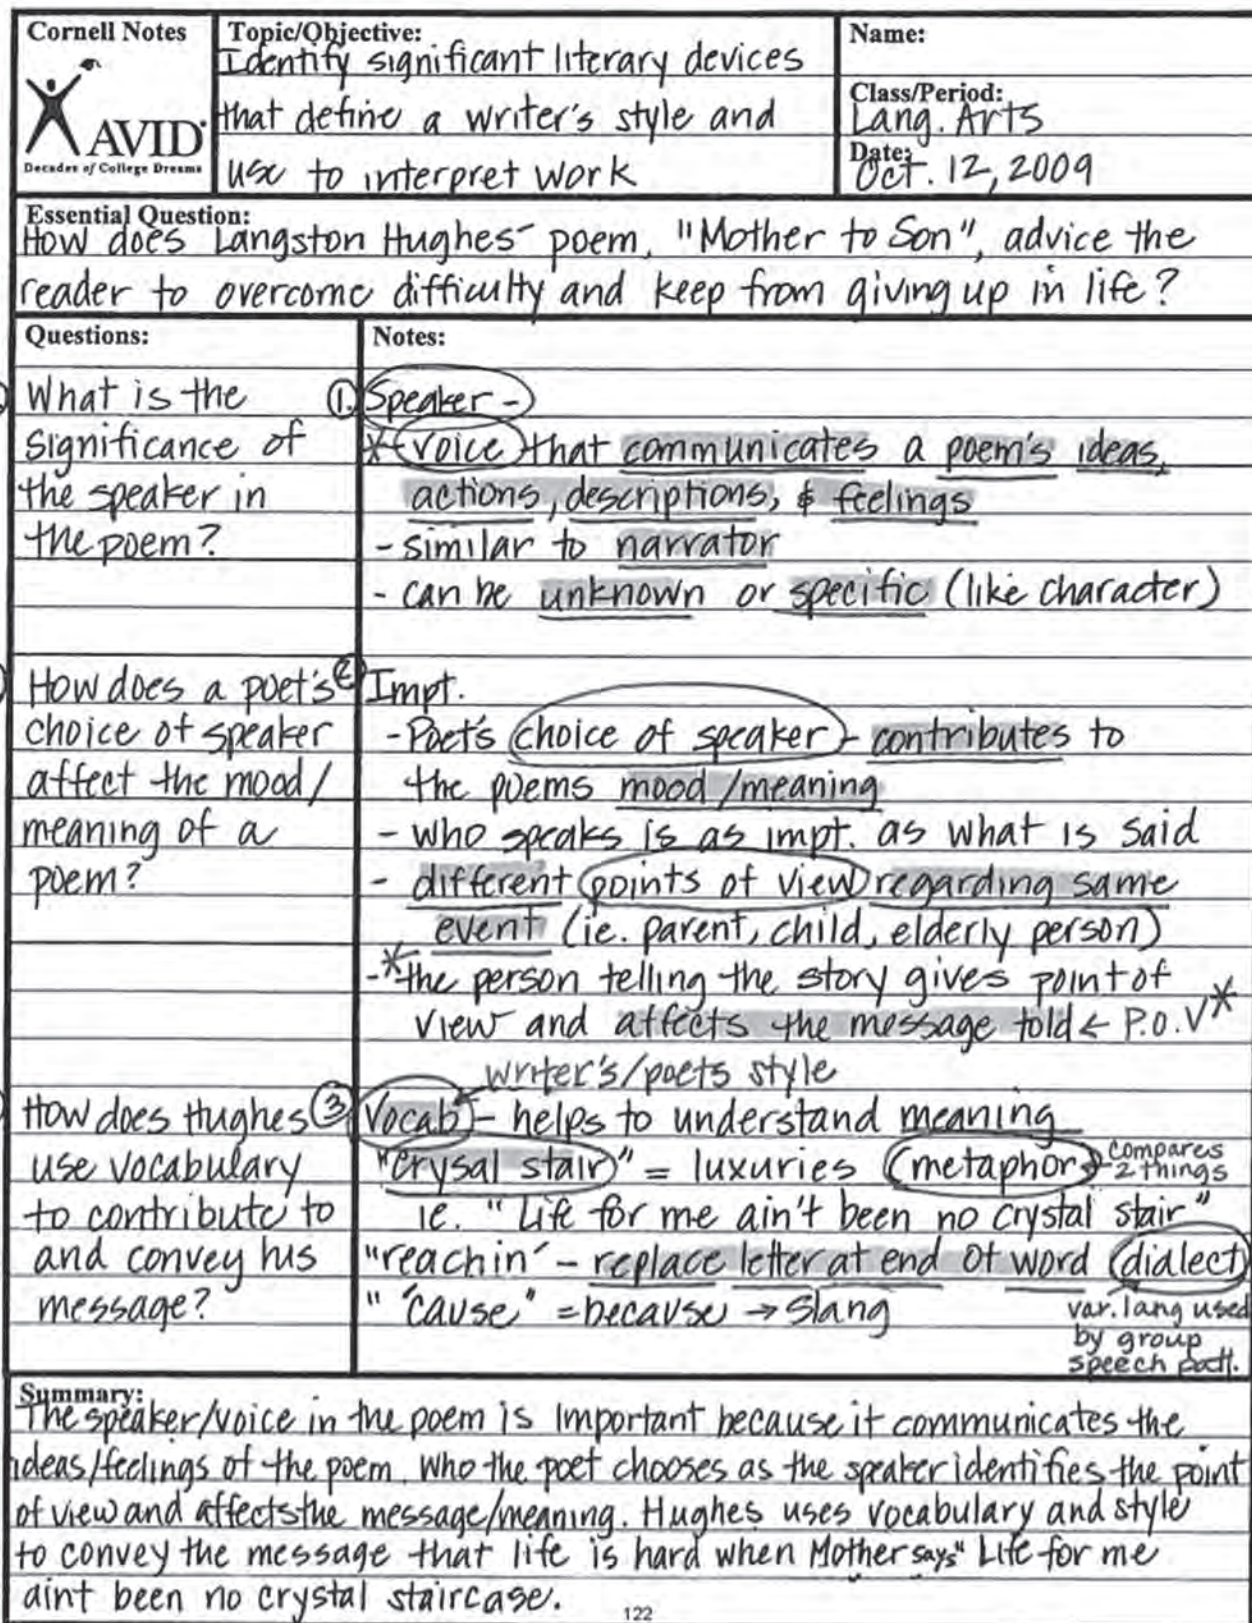 Cornell Notes
AVID
Decades of College Dreams
Topic/Objective:
Identify significant literary devices
that define a writer's style and
use to interpret work
Name:
Class/Period:
Lang. Arts
Date:
Oct. 12, 2009
Essential Question:
How does Langston Hughes' poem, "Mother to Son", advice the
reader to overcome difficulty and keep from giving up in life?
Questions:
What is the
significance of
the speaker in
the poem?
How does a poet's
choice of speaker
affect the mood/
meaning of a
poem?
How does Hughes
use vocabulary
to contribute to
and convey his
message?
Notes:
1. Speaker -
* voice that communicates a poem's ideas,
actions, descriptions, & feelings
- similar to narrator
- can be unknown or specific (like character)
2 Impt.
- Poet's choice of speaker - contributes to
the poems mood/meaning
- who speaks is as impt. as what is said
- different points of view regarding same
event (ie. parent, child, elderly person)
- * the person telling the story gives point of
view and affects the message told ← P.O.V *
writer's/poets style
3 Vocab - helps to understand meaning
"crysal stair" = luxuries (metaphor) - compares
2 things
ie. "Life for me ain't been no crystal stair"
"reachin' - replace letter at end of word (dialect)
" 'cause" = because → slang
var. lang used
by group
speech patt.
Summary:
The speaker/voice in the poem is important because it communicates the
ideas/feelings of the poem. Who the poet chooses as the speaker identifies the point
of view and affects the message/meaning. Hughes uses vocabulary and style
to convey the message that life is hard when Mother says "Life for me
aint been no crystal staircase.
122